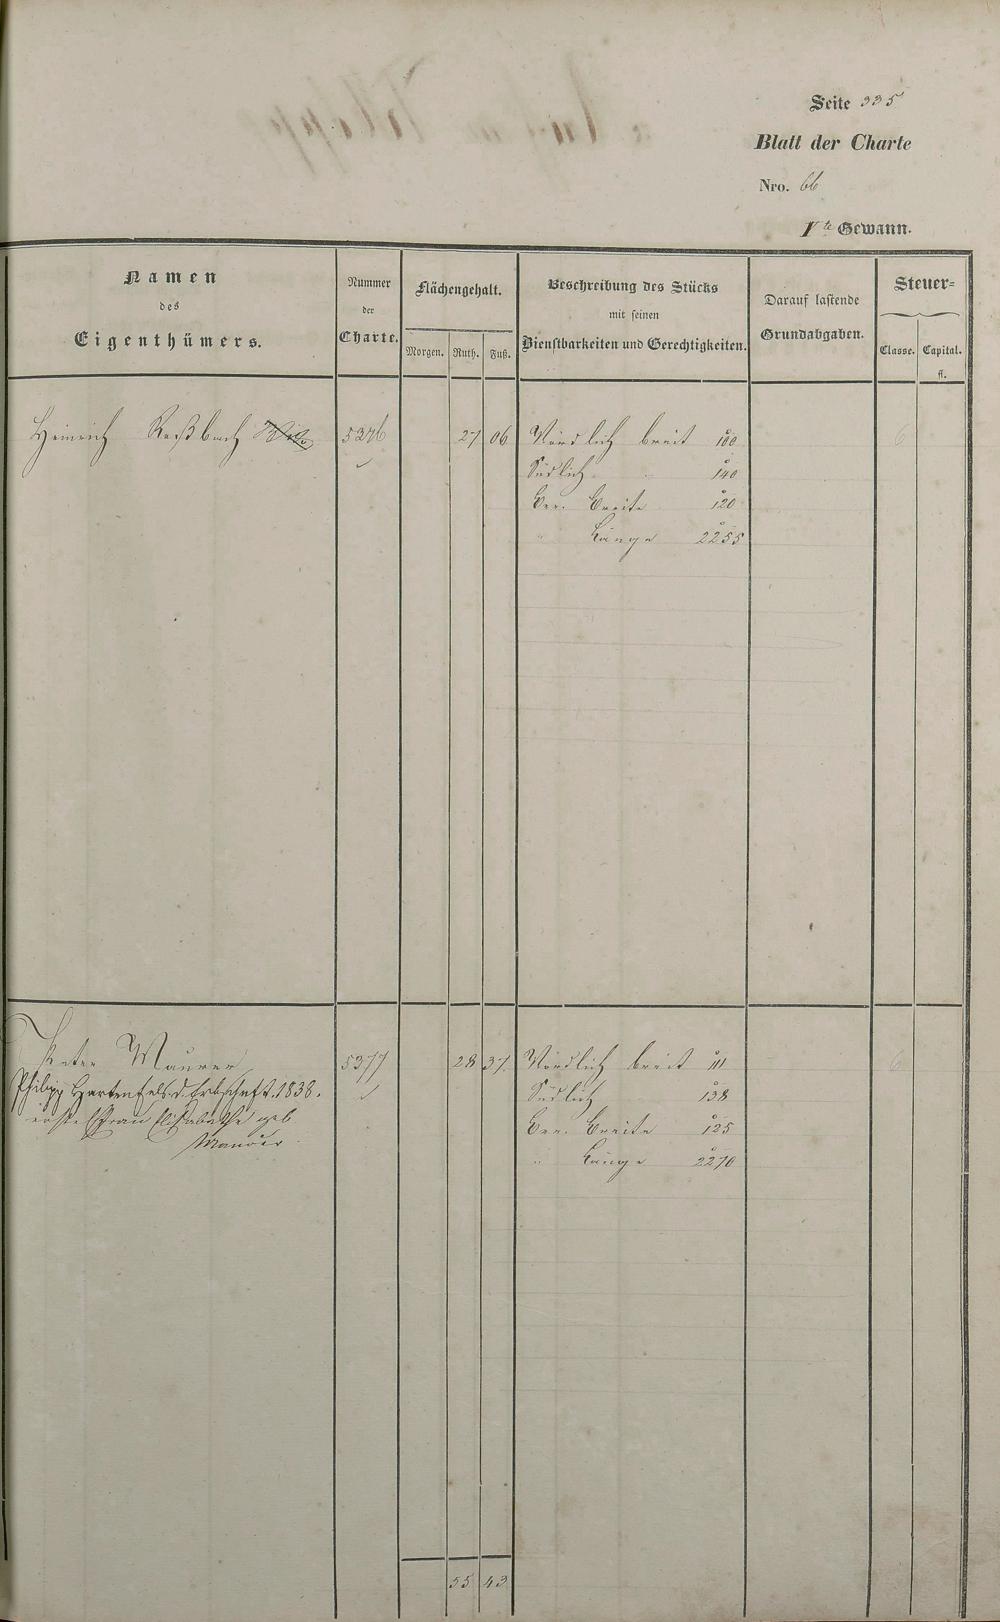 Seite 335
Blatt der Charte
Nro. 66
Gewann.
Namen
des
Eigenthümers.
Nummer
der
Charte.
Flächengehalt.
Morgen. Ruth. Fuß.
Beschreibung des Stücks
mit seinen
Dienstbarkeiten und Gerechtigkeiten.
Darauf lastende
Grundabgaben.
Steuer-
Classe. Capital.
fl.
Heinrich Roßbach 5376 27 06 Nördlich breit 100 6
Südlich 140
Ber. Breite 120
" Länge 2255
Peter Maurer 5377 28 37 Nördlich breit 111 6
Philipp Hartenfels d. Erbschaft 1838.
erste Ehfrau Elisabethe geb.
Südlich 138
Ber. Breite 125
" Länge 2270
55 43